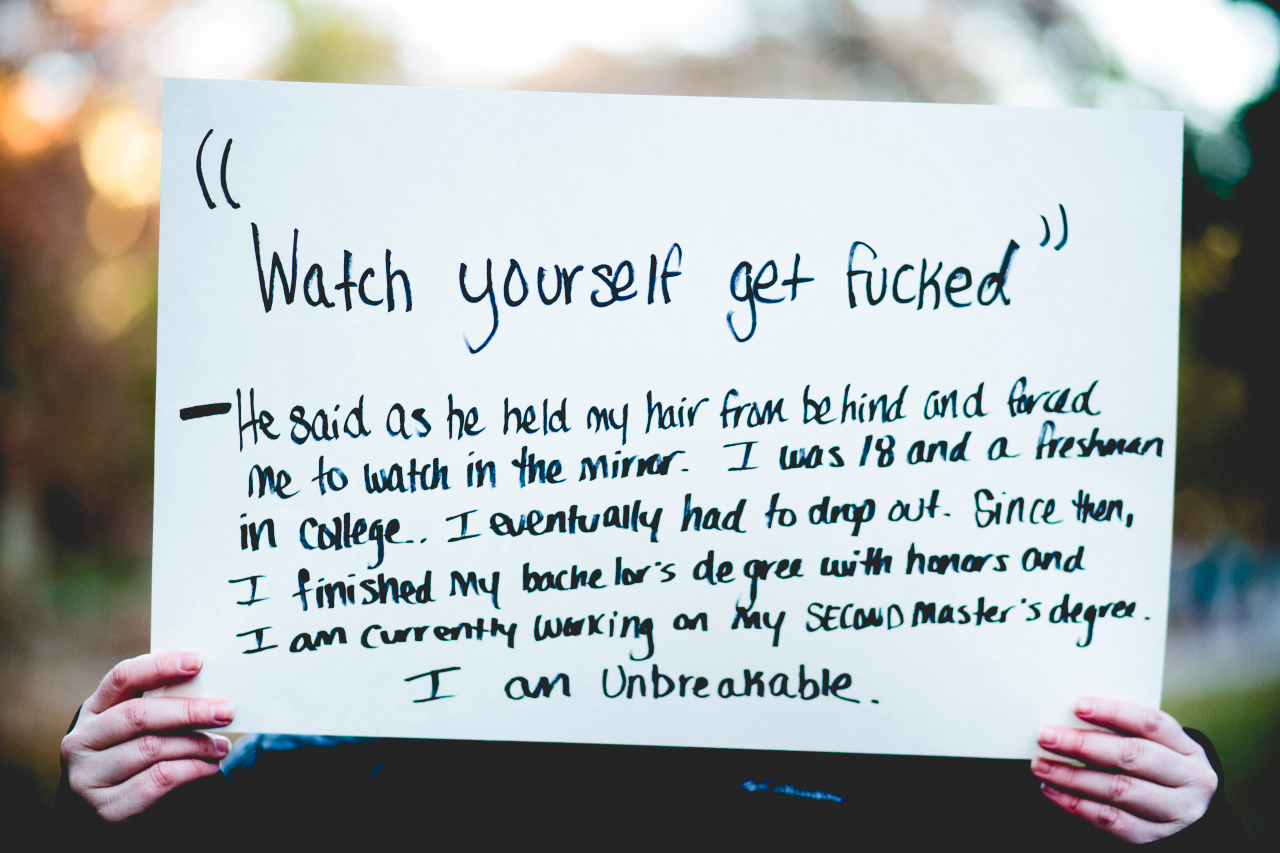 "Watch yourself get fucked"
- He said as he held my hair from behind and forced
me to watch in the mirror. I was 18 and a freshman
in college. I eventually had to drop out. Since then,
I finished my bachelor's degree with honors and
I am currently working on my SECOND master's degree.
I am Unbreakable.